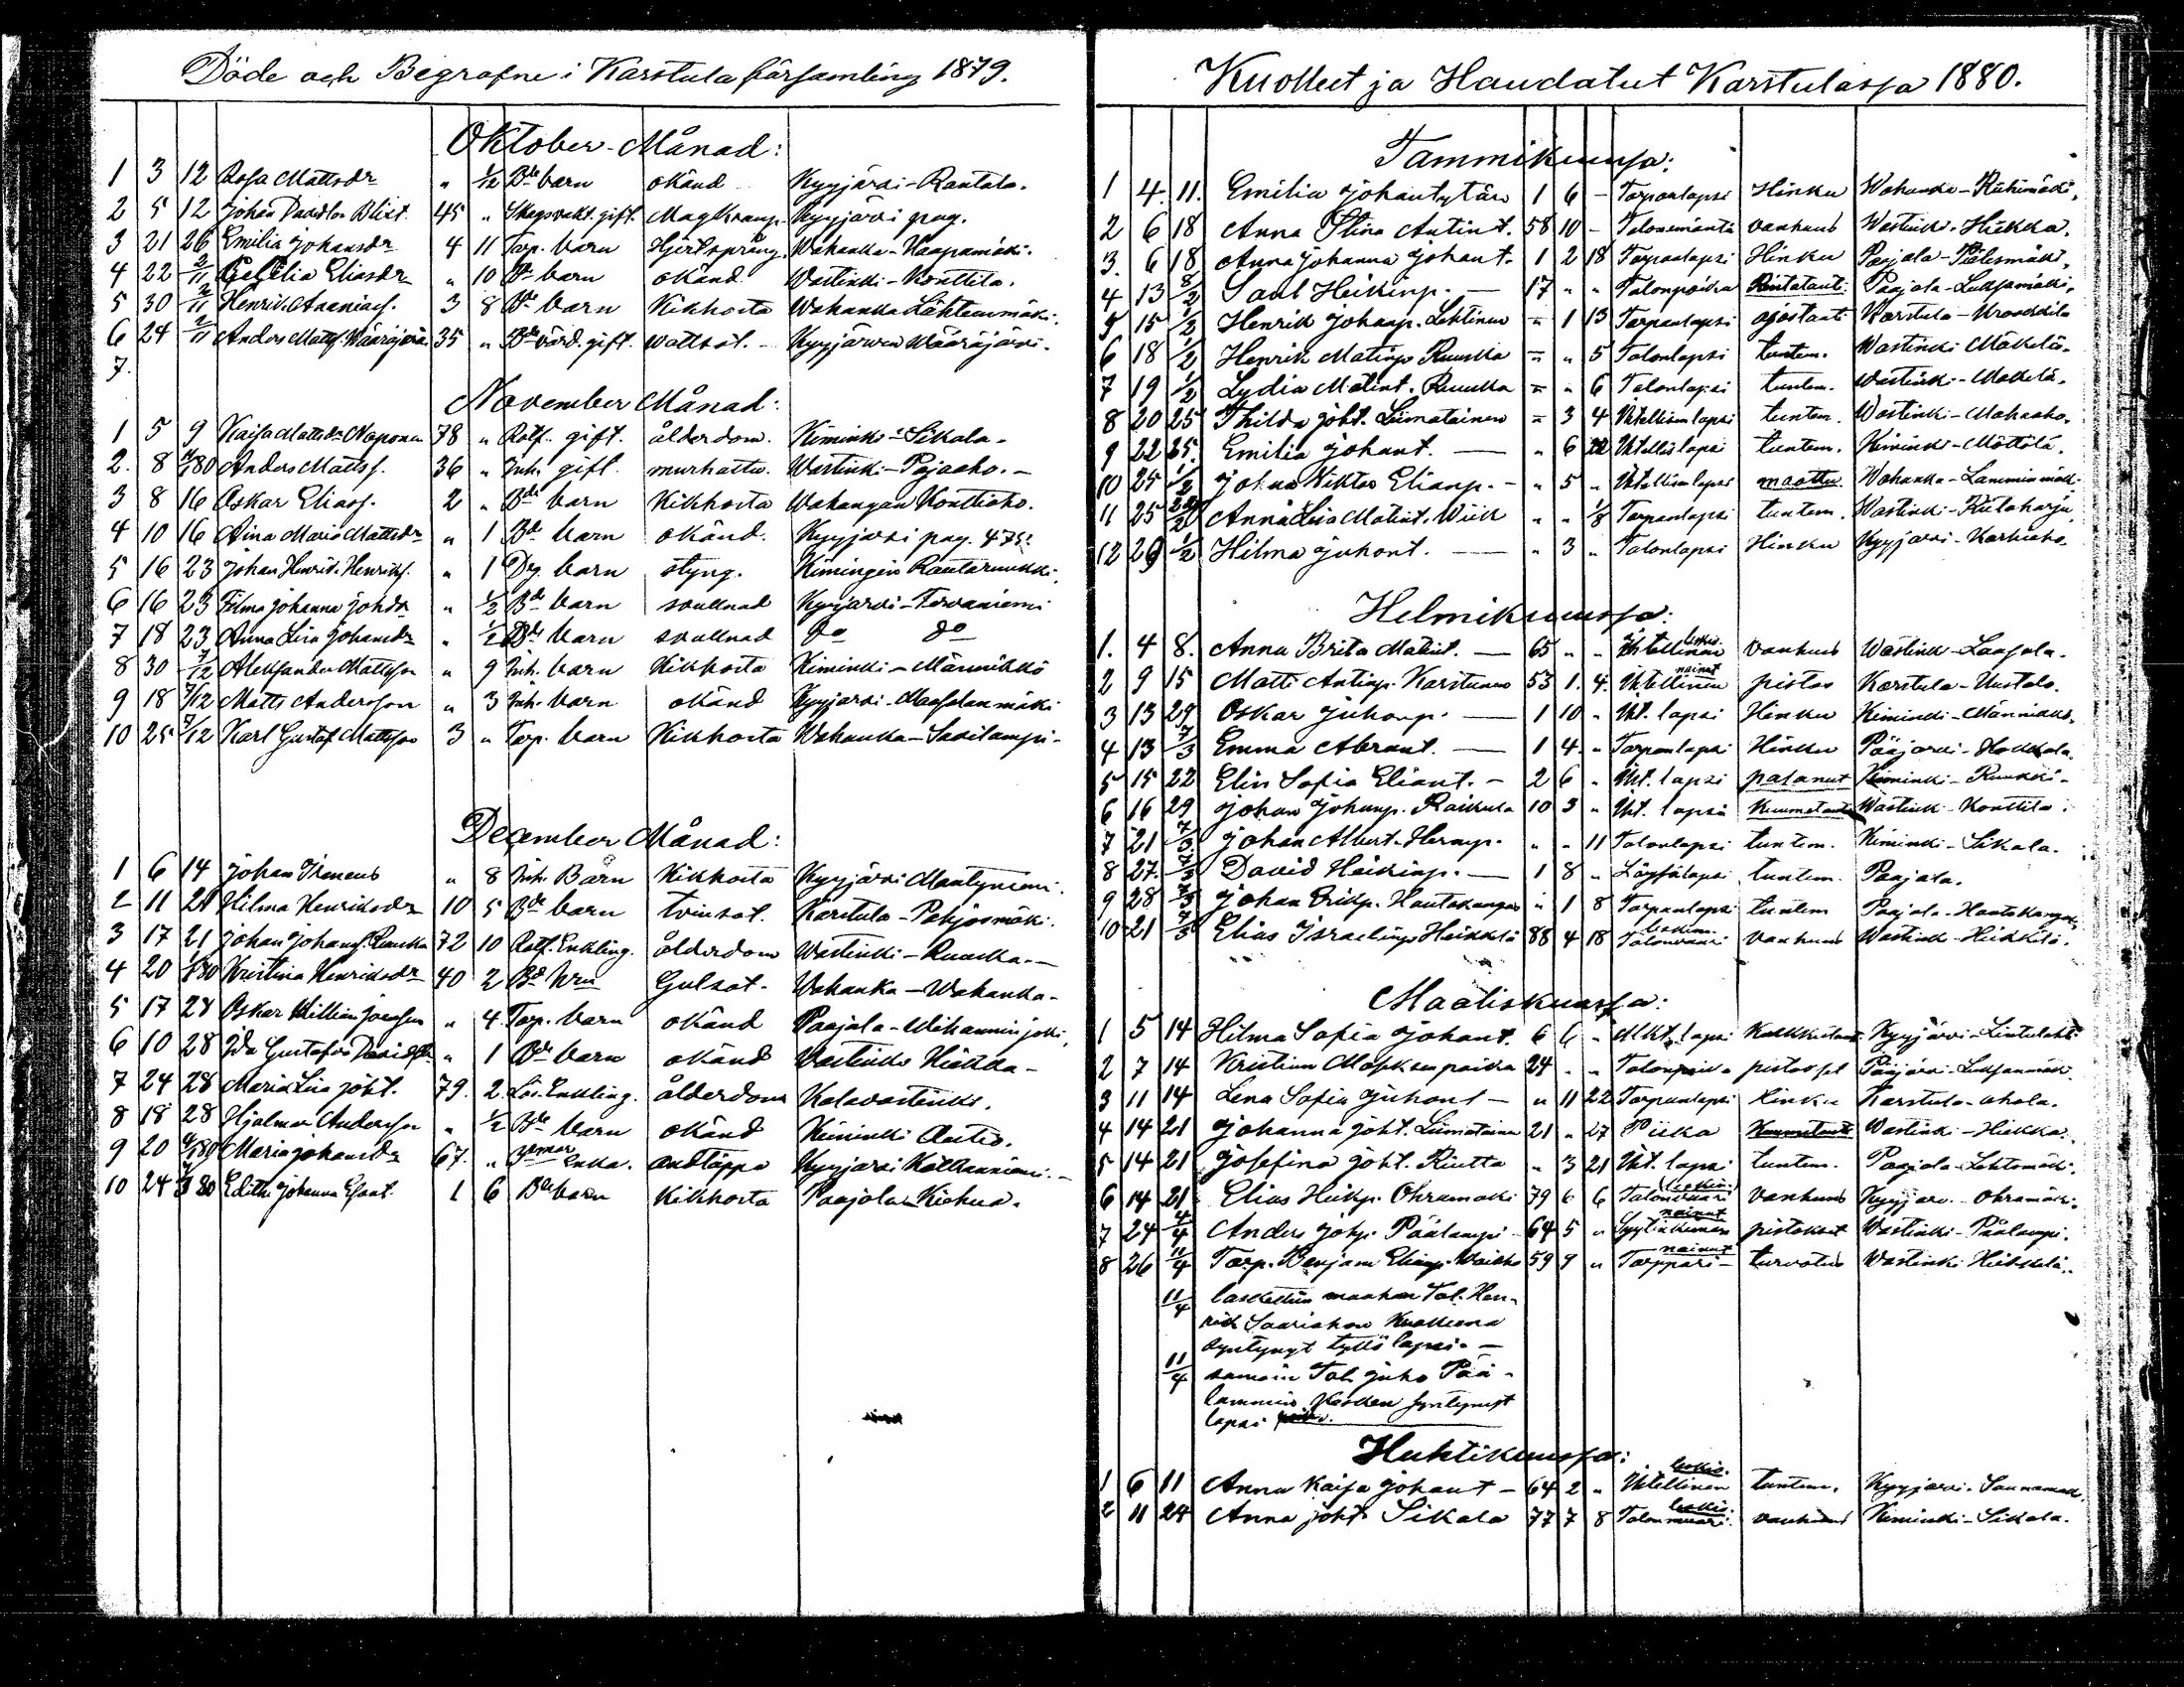 Döde och Begrafne i Karstula församling 1879.
Oktober Månad:
1 3 12 Rosa Mattsdr " 1/12 Bde barn okänd Kyyjärvi-Rantala.
2 5 12 Johan Davidson Blixt. 45 " Skogsvakt. gift. Magkramp. Kyyjärvi pag.
3 21 26 Emilia Johansdr 4 11 Torp. barn Hjertsprång Wahanka-Haapamäki.
4 22 2/11 Cecilia Eliasdr " 10 Bde barn okänd Wastinki-Konttila.
5 30 2/11 Henrik Ananiasf. 3 8 Bde barn Kikhosta Wahanka Lähteenmäki.
6 24 2/11 Anders Mattsf. Wääräjärvi 35 " Bdevärd. gift. wattsot. Kyyjärven Wääräjärvi.
7.
November Månad:
1 5 9 Kaisa Mattsdr Noponen 78 " Rotf. gift. ålderdom. Kiminki-Sikala.
2. 8 4/180 Anders Mattsf. 36 " Inh. gift. murhattu. Wastinki-Pajaaho.
3 8 16 Oskar Eliasf. 2 " Bde barn Kikhosta Wahangan Konttiaho.
4 10 16 Aina Maria Mattsdr " 1 Bde barn okänd. Kyyjärvi pag. 475.
5 16 23 Johan Henrik Henriksf. " 1 Dg. barn styng. Kimingin Rautaruukki.
6 16 23 Filma Johanna Johdr " 1/2 Bde barn svullnad Kyyjärvi-Tervaniemi
7 18 23 Anna Lisa Johansdr " 1/2 Bde barn svullnad do do
8 30 7/12 Aleksander Mattsson " 9 Inh. barn Kikhosta Kiminki-Männikkö
9 18 7/12 Matts Andersson " 3 Inh. barn okänd Kyyjärvi-Maasalanmäki
10 25 7/12 Karl Gustaf Mattsson 3 " Torp. barn Kikhosta Wahanka-Saarilampi
December Månad:
1 6 14 Johan Ireneus " 8 Inh. Barn Kikhosta Kyyjärvi Mäntyniemi.
2 11 21 Hilma Henriksdr 10 5 Bde barn tvinsot. Karstula-Pohjosmäki.
3 17 21 Johan Johansf. Ruuska 72 10 Rotf. Enkling. ålderdom Wastinki-Ruuska.
4 20 Kristina Henriksdr 40 2 Bde hru Gulsot. Wahanka-Wahanka.
5 17 28 Oskar Willian " 4. Torp. barn okänd Paajala-Wihanninjoki.
6 10 28 Ida Gustafva " 1 Bde barn okänd Wastinki Hiekka
7 24 28 Maria Lisa Joht. 79. 2. Lös. Enkling. ålderdom Kalavastinki.
8 18 28 Hjalmar Andersson " 1/2 Bde barn okänd Kiminki Autio.
9 20 4/180 Maria Johansdr 67. " Enka. andtäppa Kyyjärvi Kalkaniemi.
10 24 80 Edith Johanna Esaat. 1 6 Bde barn Kikhosta Paajala Kiohua.
Kuolleet ja Haudatut Karstulassa 1880.
Tammikuussa:
1 4. 11. Emilia Johantytär 1 6 - Torpanlapsi Hinku Wahanka-Riihimäki.
2 6 18 Anna Stina Antint. 58 10 - Talonemäntä vanhuus Wastinki-Hiekka.
3. 6 18 Anna Johanna Johant. 1 2 18 Torpanlapsi Hinku Paajala-Pölesmäki.
4 13 8/2 Saul Heikinp. 17 " " Talonpoika Rintataut. Paajala-Luksamäki.
5 15 1/2 Henrik Johanp. Lehtinen = 1 13 Torpanlapsi ajostauti Karstula-
6 18 1/2 Henrik Matinp. Ruuska = " 5 Talonlapsi tuntem. Wastinki Mäkelä.
7 19 1/2 Lydia Matint. Ruuska = " 6 Talonlapsi tuntem. Wastinki-Mäkelä.
8 20 25 Thilda Joht. Liimatainen = 3 4 Itsellisenlapsi tuntem. Wastinki-Mahaaho.
9 22 25. Emilia Johant. " 6 22 Itsellis lapsi tuntem. Kiminki-Möttölä.
10 25 1/2 Johan Viktor Elianp. " 5 " Itsellisen lapsi maattu. Wahanka-Lamminmäki.
11 25 22/2 Anna Lisa Matint. Wiik " " 1/8 Torpanlapsi tuntem. Wastinki-Riitaharju.
12 29 1/2 Hilma Juhont. " 3 " Talonlapsi Hinku Kyyjärvi-Karhiaho.
Helmikuussa:
1. 4 8. Anna Brita Matint. 65 " " leskin. Itsellinen vanhuus Wastinki-Laajala.
2 9 15 Matti Antinp. Karstunen 53 1. 4. nainut Itsellinen pistos Karstula-Uustalo.
3 13 29 Oskar Juhonp. 1 10 - Itst. lapsi Hinku Kiminki-Männikkö.
4 13 7/3 Emma Abrant. 1 4. " Torpanlapsi Hinku Pääjärvi-Hokkala.
5 15 22 Elin Sofia Eliant. - 2 6 " Itst. lapsi palanut Kiminki-Ruukki.
6 16 29 Johan Johanp. Raikula 10 3 " Itst. lapsi Kuumetauti Wastinki-Konttila.
7 21 7/3 Johan Albert Hermp. " - 11 Talonlapsi tuntem. Kiminki-Sikala.
8 27. 7/3 David Heikinp. 1 8 " Löysälapsi tuntem. Paajala.
9 28 7/3 Johan Erikp. Hautakangas " 1 8 Torpanlapsi tuntem Paajala-Hautakangas.
10 21 7/3 Elias Israelinp. Heikkilä 88 4 18 leskim. Talonvaari vanhuus Wastinki-Heikkilä.
Maaliskuussa:
1 5 14 Hilma Sofia Johant. 6 6 - Itst. lapsi Kurkkutauti Kyyjärvi-Lintulahti
2 7 14 Kristian Masksenpoika 24 " " Talonpoika pistossel Pääjärvi-Luksanmäki.
3 11 14 Lena Sofia Juhont - " 11 22 Torpanlapsi hinku Karstula-ahola.
4 14 21 Johanna Joht. Liimatainen 21 " 27 Piika Kuumetauti Wastinki-Hiekka.
5 14 21 Josefina Joht. Riutta " 3 21 Itst. lapsi tuntem. Paajala-Lehtomäki.
6 14 21 Elias Heikp. Ohramäki 79 6 6 leskim. Talonvaari vanhuus Kyyjärvi-Ohramäki.
7 24 4/4 Anders Johp. Päälampi 64 5 " nainut Syytinkimies pistokset Wastinki-Päälampi.
8 26 11/4 Torp. Benjam Elianp. 59 9 " nainut Torppari- turvotus Wastinki Heikkilä.
11/4 laskettiin maahan Tal. Hen-
rik Saariahon Kuolleena
syntynyt tyttö lapsi.
11/4 samoin Tal. Juho Pää-
lammin Kesken syntynyt
lapsi
Huhtikuussa:
1 6 11 Anna Kaisa Johant - 64 2 " leskis. Itsellinen tuntem. Kyyjärvi-Saunamäki.
2 11 24 Anna Joht. Sikala 77 7 8 leskis. Talonmuori vanhuus Kiminki-Sikala.